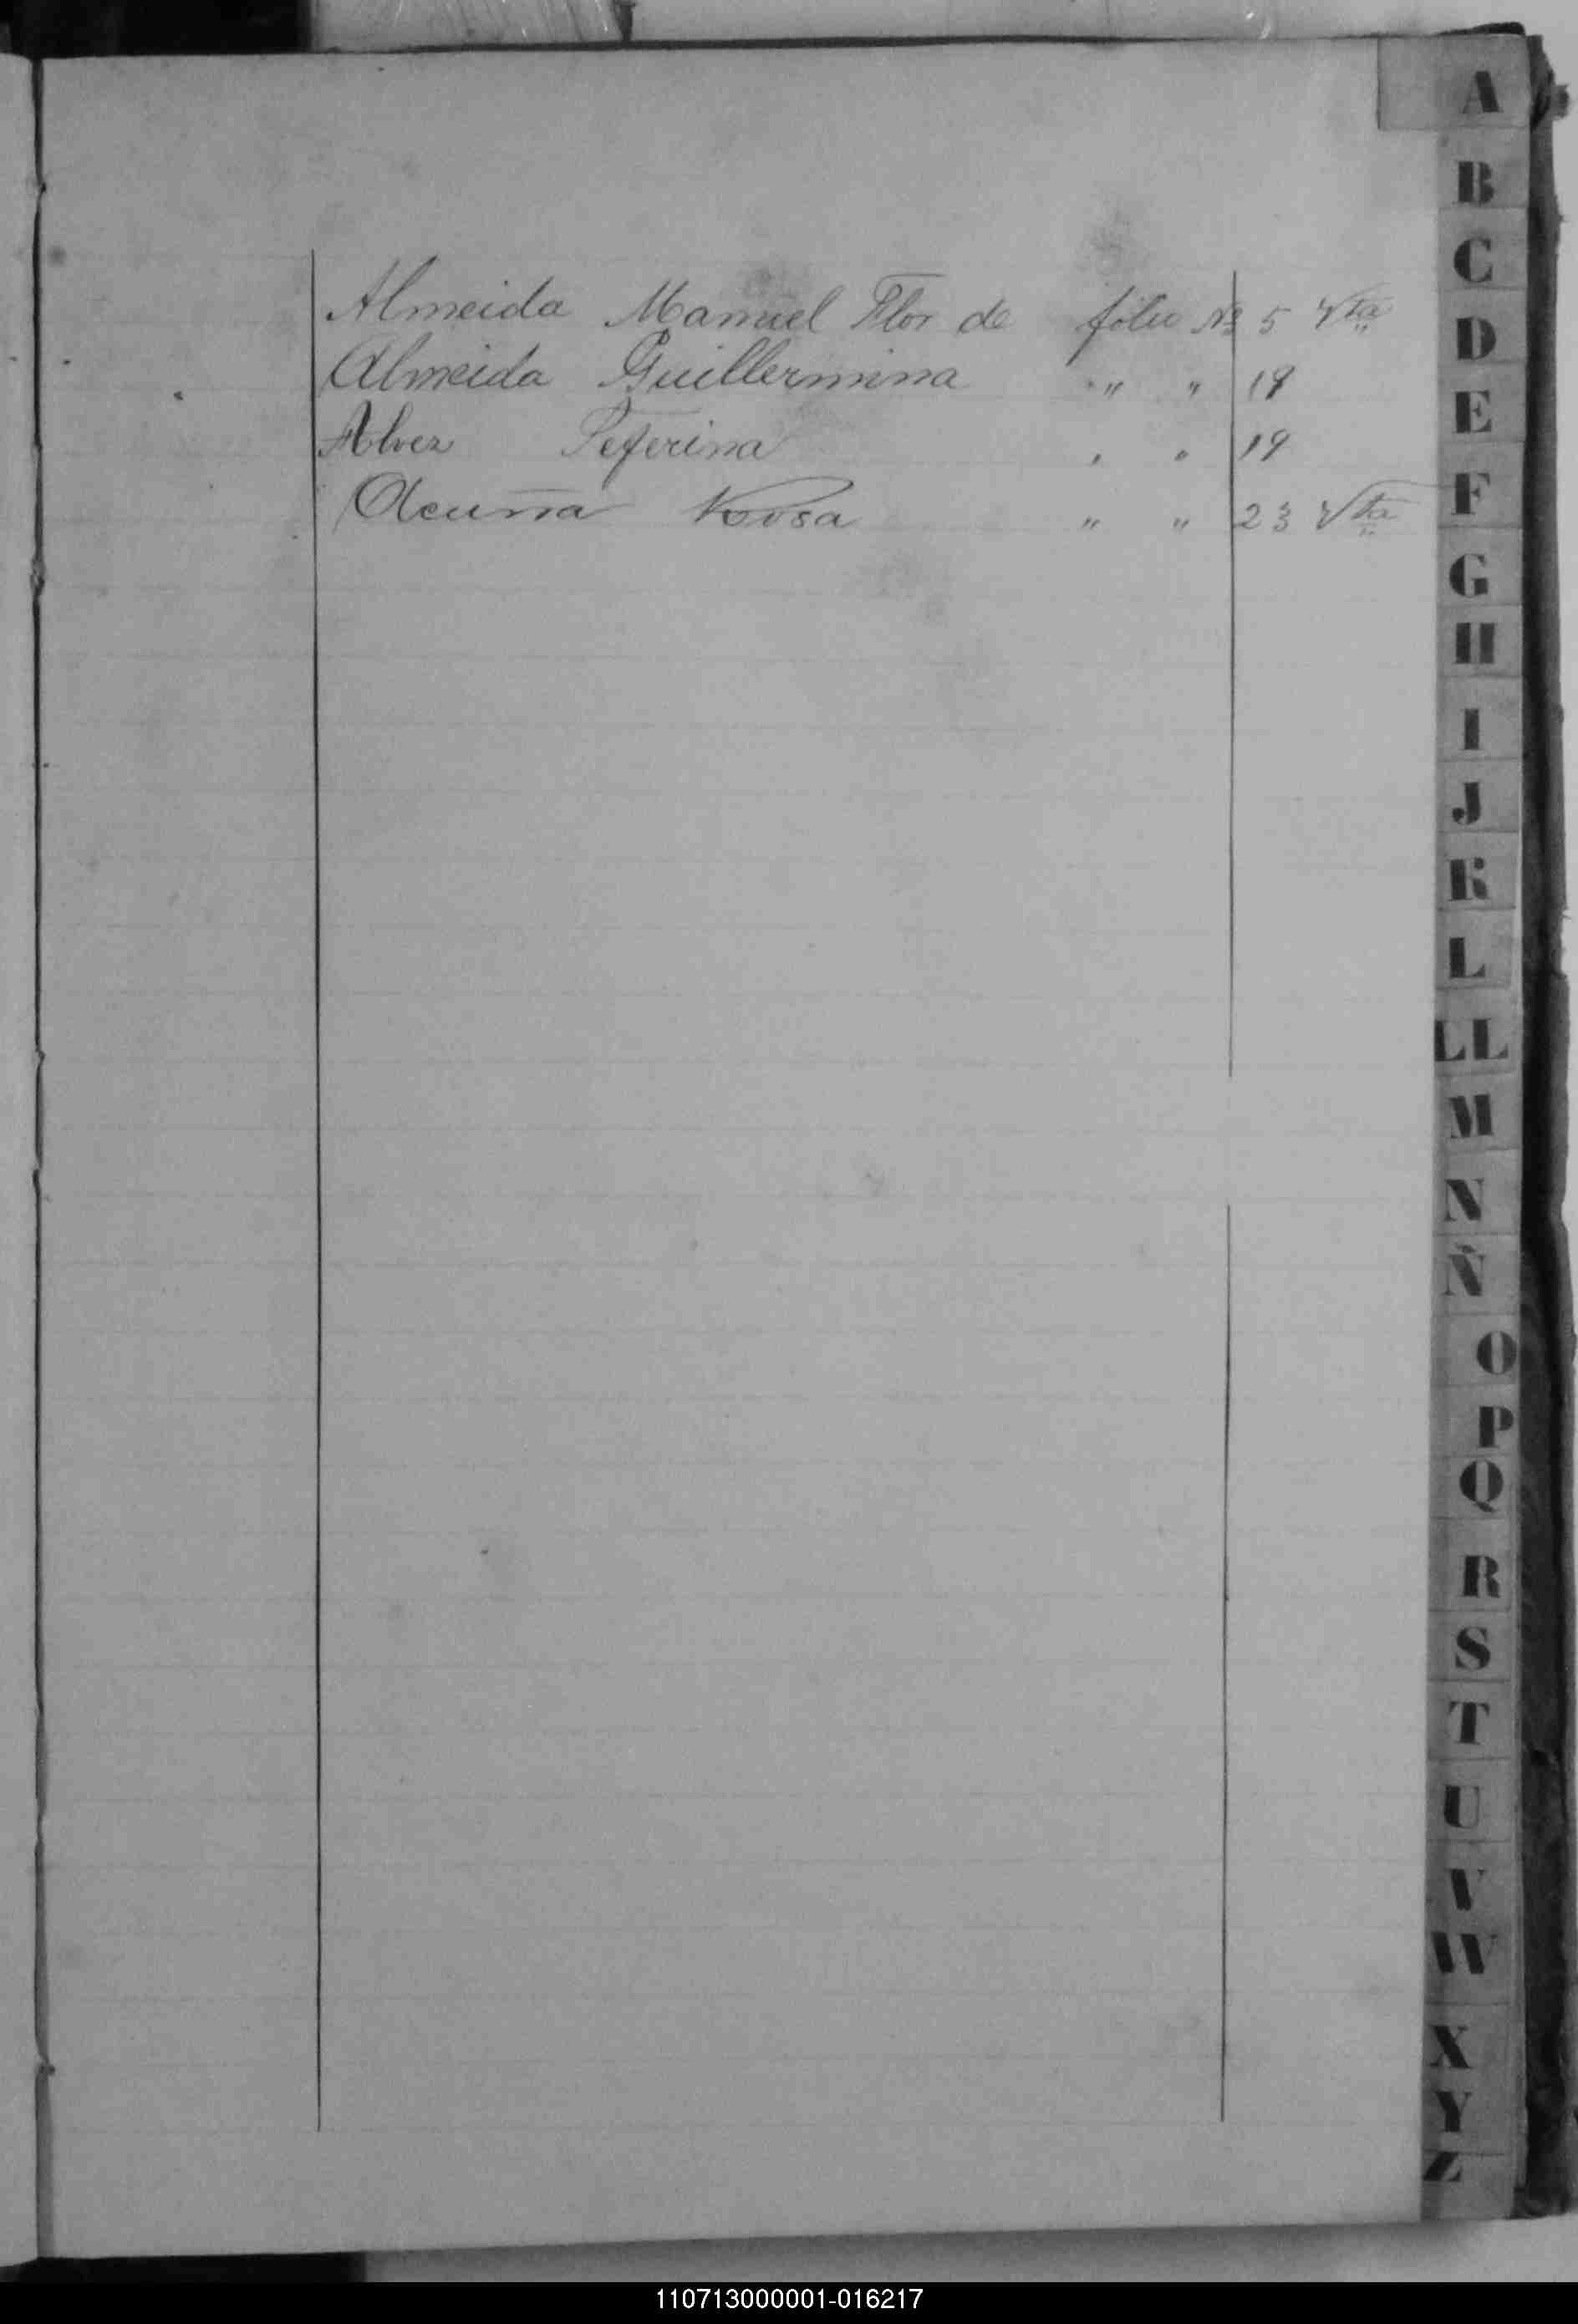 Almeida Manuel Flor de folio Nº 5 Vta
Almeida Guillermina " " 19
Alvez Seferina " " 19
Acuña Rosa " " 23 Vta
A
B
C
D
E
F
G
H
I
J
K
L
LL
M
N
Ñ
O
P
Q
R
S
T
U
V
W
X
Y
Z
110713000001-016217